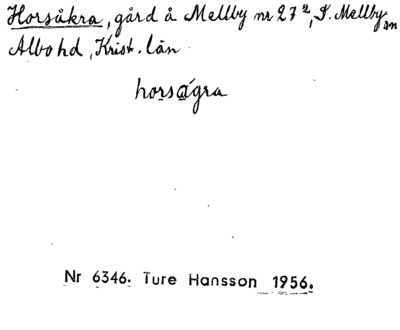 Horsåkra, gård å Mellby nr 27², S. Mellby sn
Albo hd, Krist. län
horságra
Nr 6346. Ture Hansson 1956.